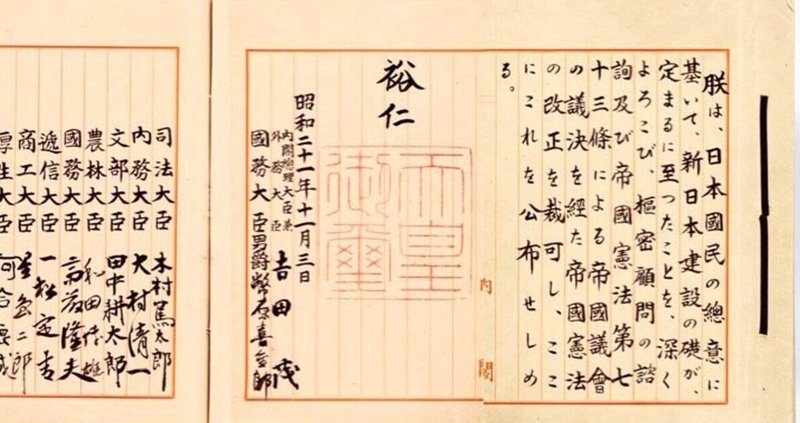 朕は、日本國民の總意に
基いて、新日本建設の礎が、
定まるに至つたことを、深く
よろこび、樞密顧問の諮
詢及び帝國憲法第七
十三條による帝國議會
の議決を經た帝國憲法
の改正を裁可し、ここ
にこれを公布せしめ
る。
内閣
裕仁
天皇
御璽
昭和二十一年十一月三日
内閣總理大臣兼
外務大臣 吉田茂
國務大臣 男爵幣原喜重郎
司法大臣 木村篤太郎
内務大臣 大村清一
文部大臣 田中耕太郎
農林大臣 和田博雄
國務大臣 斎藤隆夫
遞信大臣 一松定吉
商工大臣 星島二郎
厚生大臣 河合良成